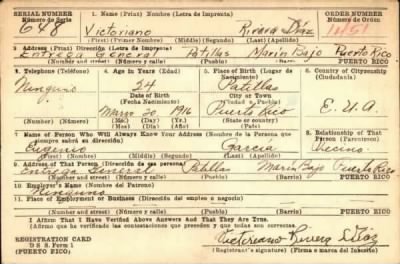 SERIAL NUMBER 1. Name (Print) Nombre (Letra de Imprenta) ORDER NUMBER
Número de Serie Número de Orden
648 Victoriano Rivera Díaz
(First) (Primer Nombre) (Middle) (Segundo) (Last) (Apellido)
2. Address (Print) Dirección (Letra de Imprenta)
Entrega General Patillas Marín Bajo Puerto Rico
(Number and street) (Número y calle) (Pueblo) (Barrio) PUERTO RICO
3. Telephone (Teléfono) 4. Age in Years (Edad) 5. Place of Birth (Lugar de Nacimiento) 6. Country of Citizenship (Ciudadanía)
Ninguno 24 Patillas
Date of Birth City or Town
(Fecha Nacimiento) (Ciudad o Pueblo)
Marzo 20 1916 Puerto Rico E.U.A.
(Mo.) (Day) (Yr.) (State or country)
(Mes) (Día) (Año)
7. Name of Person Who Will Always Know Your Address (Nombre de la Persona que siempre sabrá su dirección) 8. Relationship of That Person (Parentesco)
Eugenio García Vecino
(First) (Primer Nombre) (Middle) (Segundo) (Last) (Apellido)
9. Address of That Person (Dirección de esa persona)
Entrega General Patillas Marín Bajo Puerto Rico
(Number and street) (Número y calle) (Pueblo) (Barrio) PUERTO RICO
10. Employer's Name (Nombre del Patrono)
Ninguno
11. Place of Employment or Business (Dirección del empleo o negocio)
(Number and street) (Número y calle) (Pueblo) (Barrio) PUERTO RICO
I Affirm That I Have Verified Above Answers And That They Are True.
(Afirmo que he verificado las contestaciones que preceden y que todas son correctas.)
REGISTRATION CARD
D S S. Form 1
(PUERTO RICO)
Victoriano Rivera Díaz
(Registrant's signature) (Firma o marca del Inscrito)